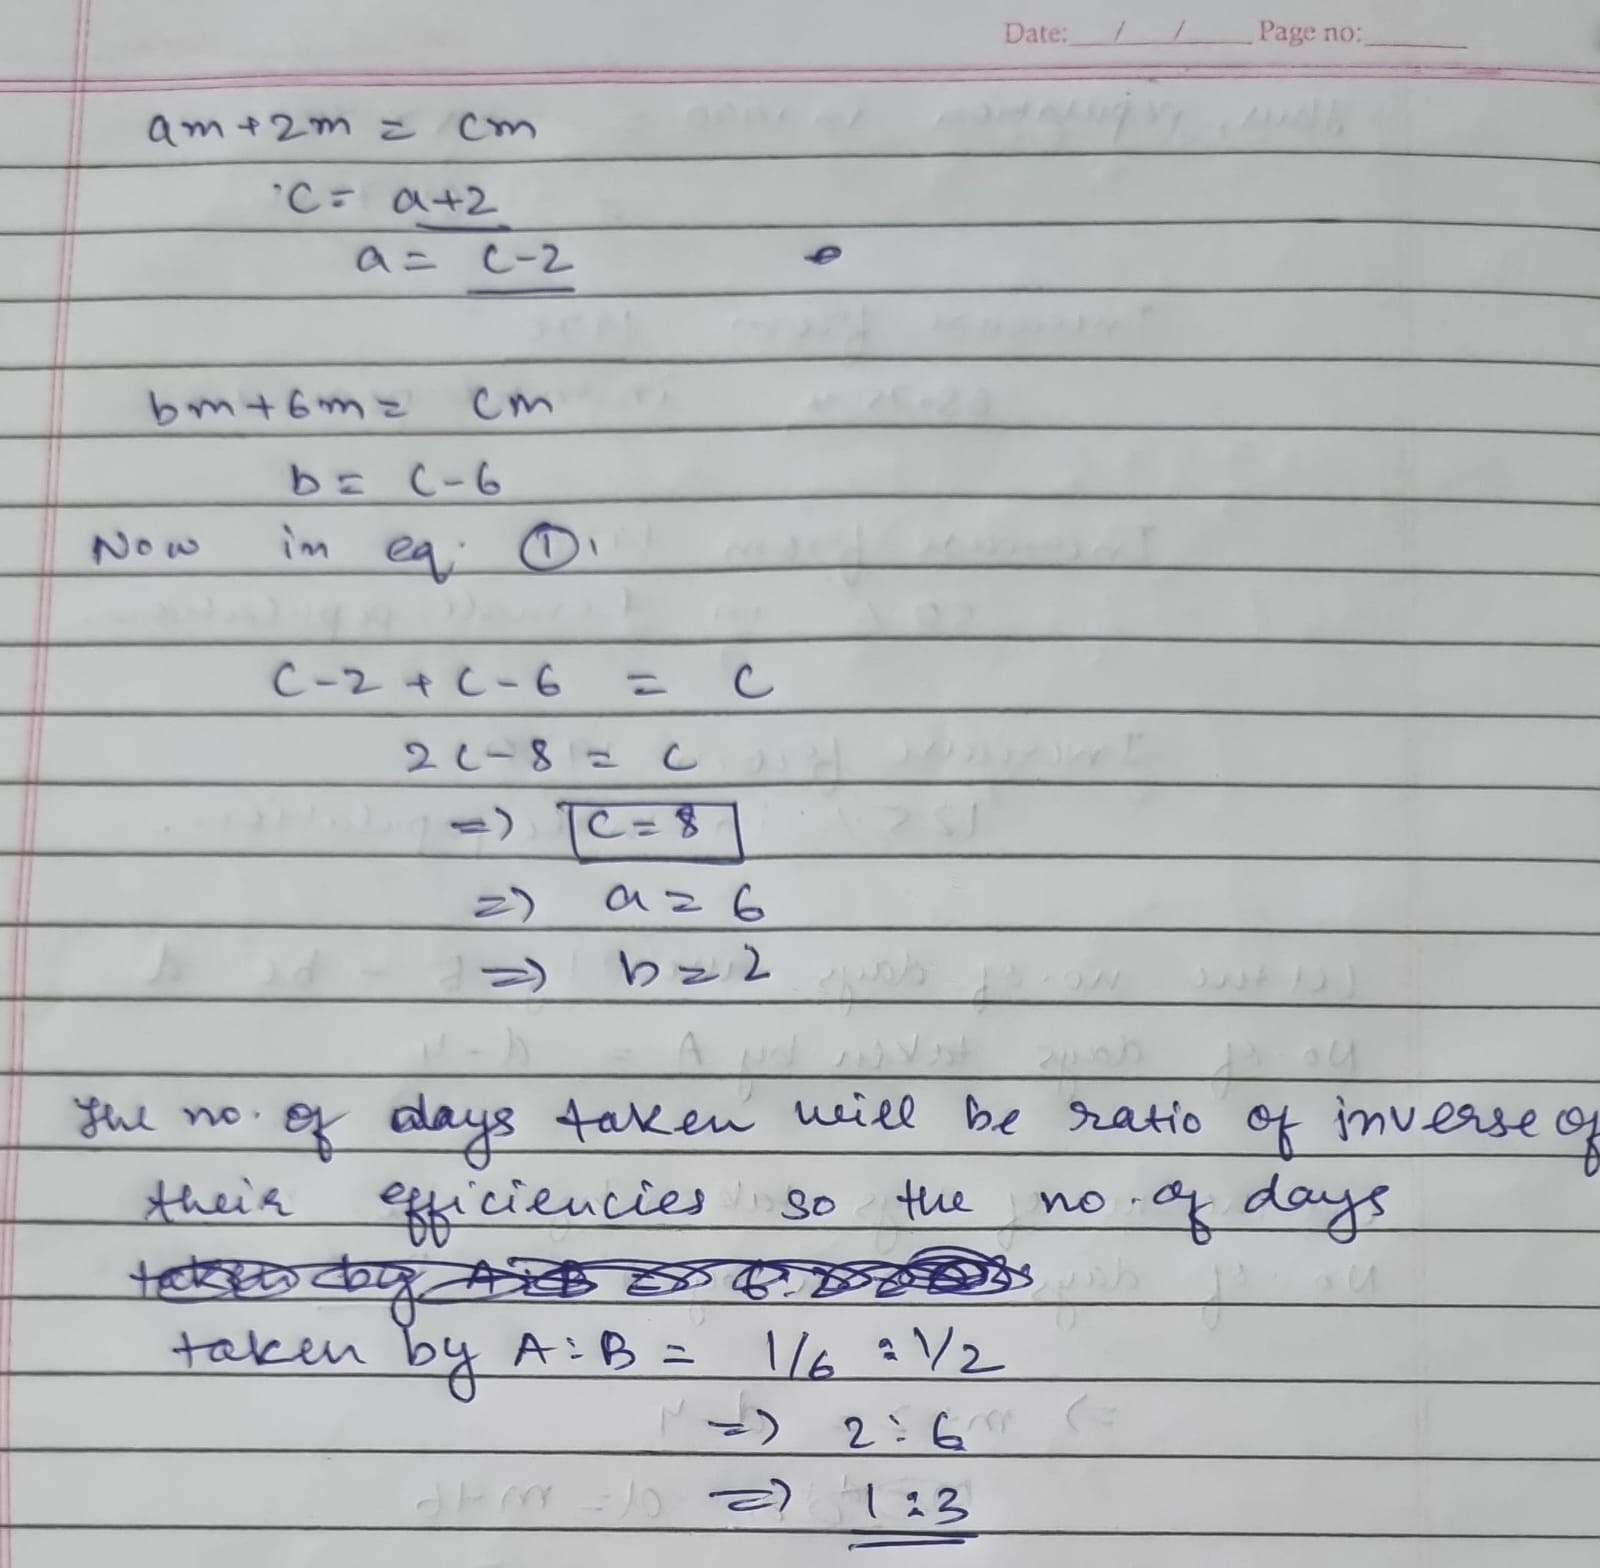 Date: / / Page no:
am+2m = cm
C = a+2
a = c-2
bm+6m = cm
b = c-6
Now in eq. ①,
c-2 + c-6 = c
2c-8 = c
=) c=8
=) a = 6
=) b = 2
The no. of days taken will be ratio of inverse of
their efficiencies so the no. of days
taken by A:B =
taken by A:B = 1/6 : 1/2
=) 2:6
=) 1:3